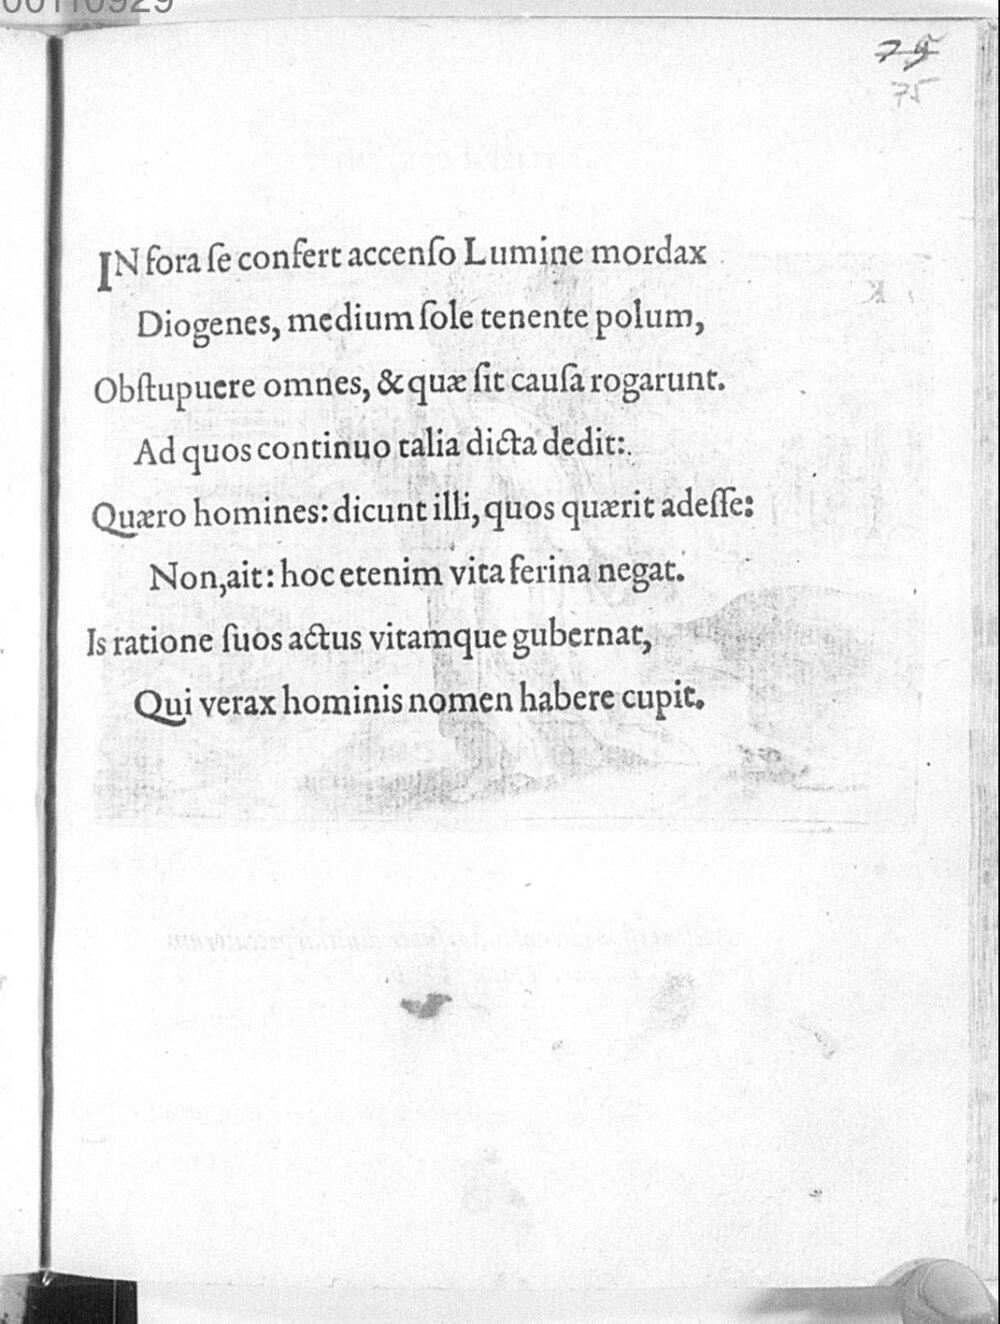 00110929
75
75
IN fora ſe confert accenſo Lumine mordax
Diogenes, medium ſole tenente polum,
Obſtupuere omnes, & quæ ſit cauſa rogarunt.
Ad quos continuo talia dicta dedit:
Quæro homines: dicunt illi, quos quærit adeſſe:
Non, ait: hoc etenim vita ferina negat.
Is ratione ſuos actus vitamque gubernat,
Qui verax hominis nomen habere cupit.